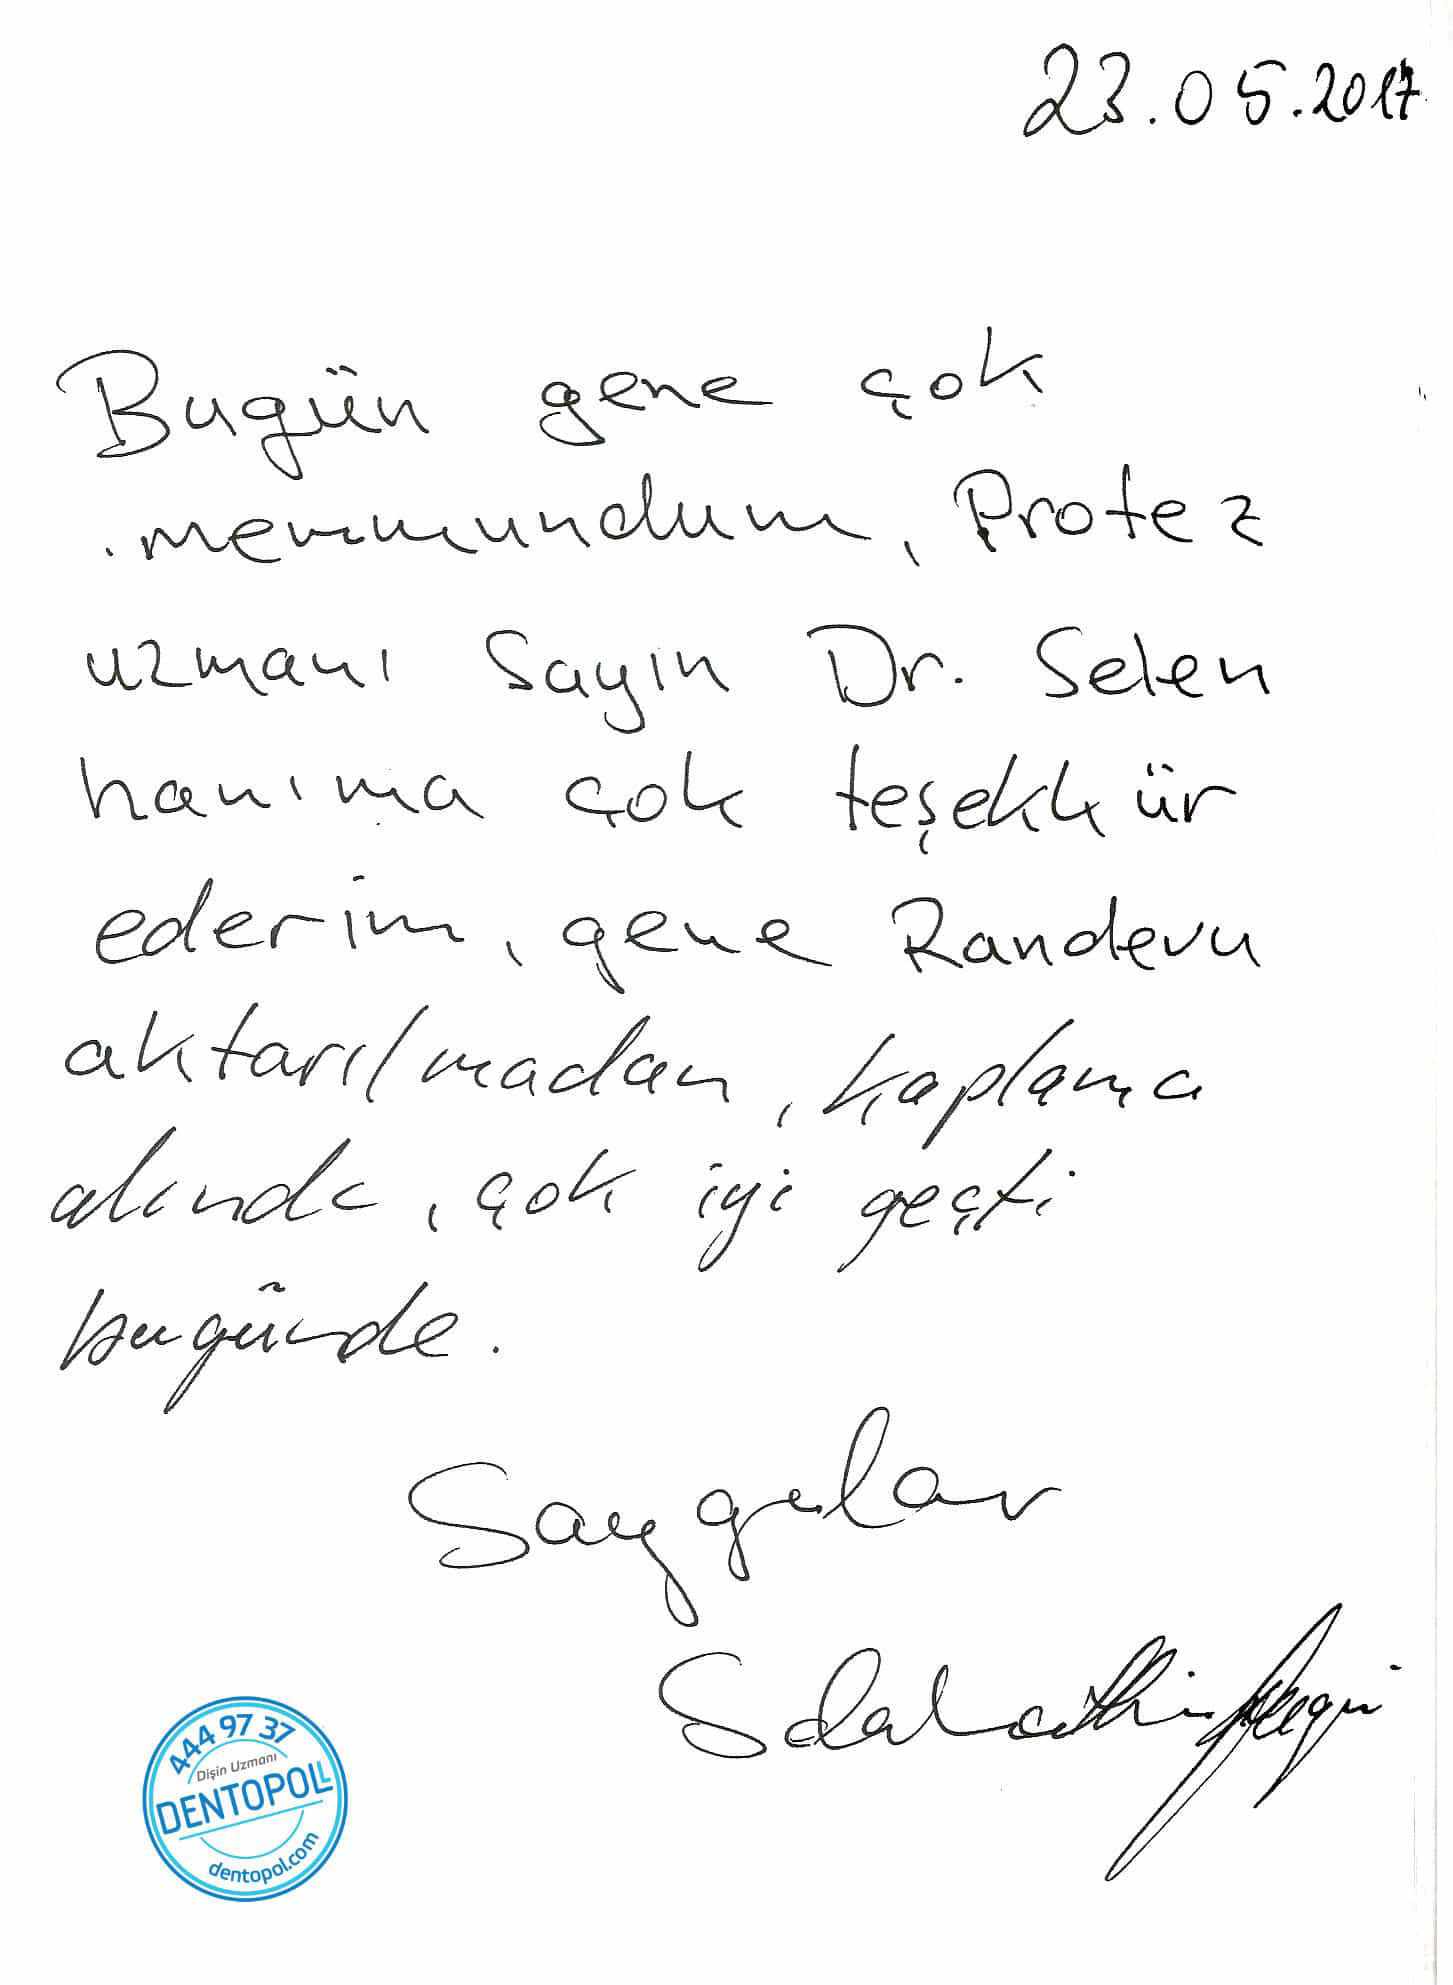 23.05.2017
Bugün gene çok
memmundum, Protez
uzmanı Sayın Dr. Selen
hanıma çok teşekkür
ederim, gene Randevu
aktarılmadan, kaplama
alındı, çok iyi geçti
bugünde.
Saygılar
444 97 37
Dişin Uzmanı
DENTOPOL
dentopol.com